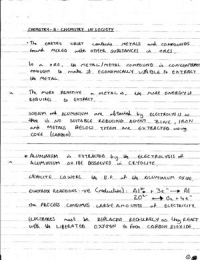 CHEMISTRY - 3 - CHEMISTRY IN SOCIETY
• THE EARTHS CRUST CONTAINS METALS AND COMPOUNDS
FOUND MIXED WITH OTHER SUBSTANCES IN ORES.
IN A ORE, THE METAL/METAL COMPOUND IS CONCENTRATED
ENOUGH TO MAKE IT ECONOMICALLY VIABLE TO EXTRACT
THE METAL.
• THE MORE REACTIVE A METAL IS, THE MORE ENERGY IS
REQUIRED TO EXTRACT.
SODIUM AND ALUMINIUM ARE OBTAINED BY ELECTROLYSIS AS
THERE IS NO SUITABLE REDUCING AGENT. ZINC, IRON
AND METALS BELOW THEM ARE EXTRACTED USING
COKE (CARBON).
• ALUMINIUM IS EXTRACTED BY THE ELECTROLYSIS OF
ALUMINIUM OXIDE DISSOLVED IN CRYOLITE.
CRYOLITE LOWERS THE M.P. OF THE ALUMINIUM OXIDE.
ELECTRODE REACTIONS: -VE (REDUCTION): Al³⁺ + 3e⁻ → Al
2O²⁻ → O₂ + 4e⁻
THE PROCESS CONSUMES LARGE AMOUNTS OF ELECTRICITY.
ELECTRODES MUST BE REPLACED REGULARLY AS THEY REACT
WITH THE LIBERATED OXYGEN TO FORM CARBON DIOXIDE.